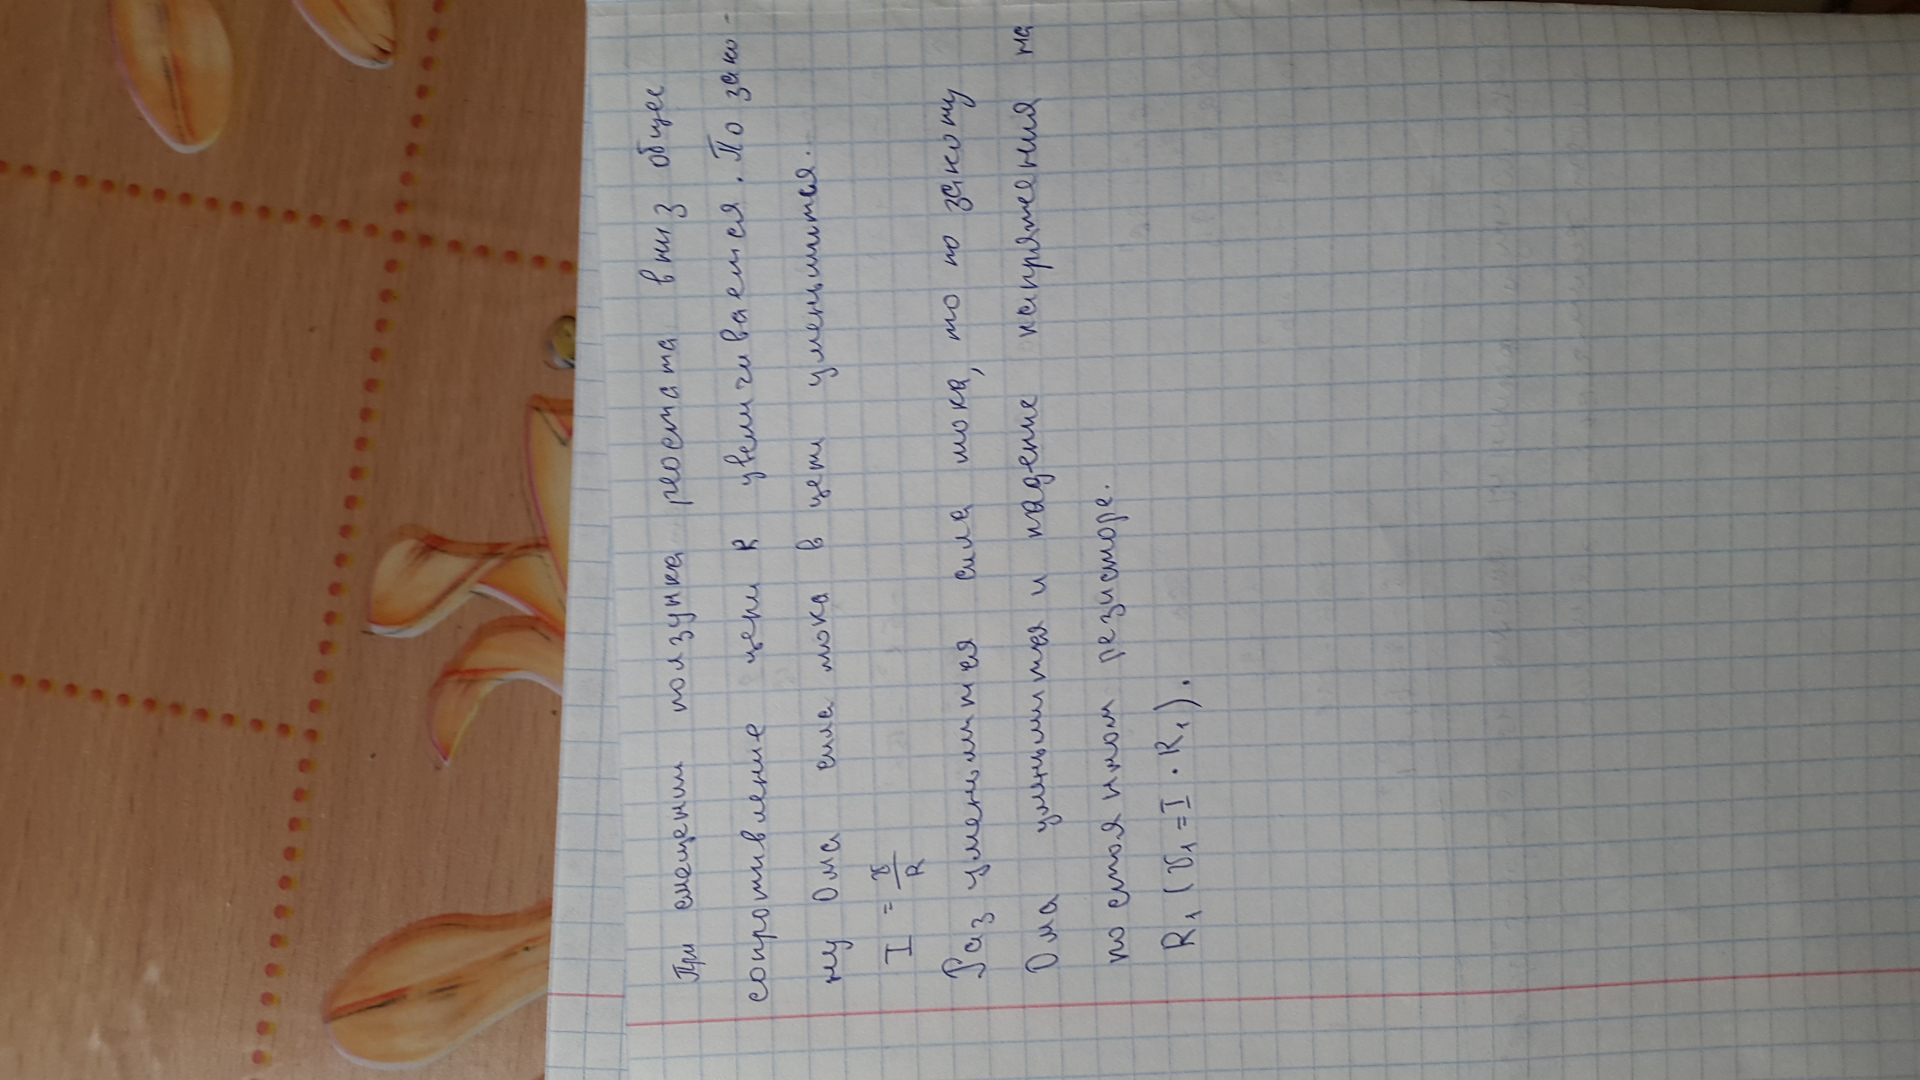 При смещении ползунка реостата вниз общее
сопротивление цепи R увеличивается. По зако-
ну Ома сила тока в цепи уменьшится.
I = U/R
Раз уменьшится сила тока, то по закону
Ома уменьшится и падение напряжения на
постоянном резисторе.
R₁ (U₁ = I · R₁).